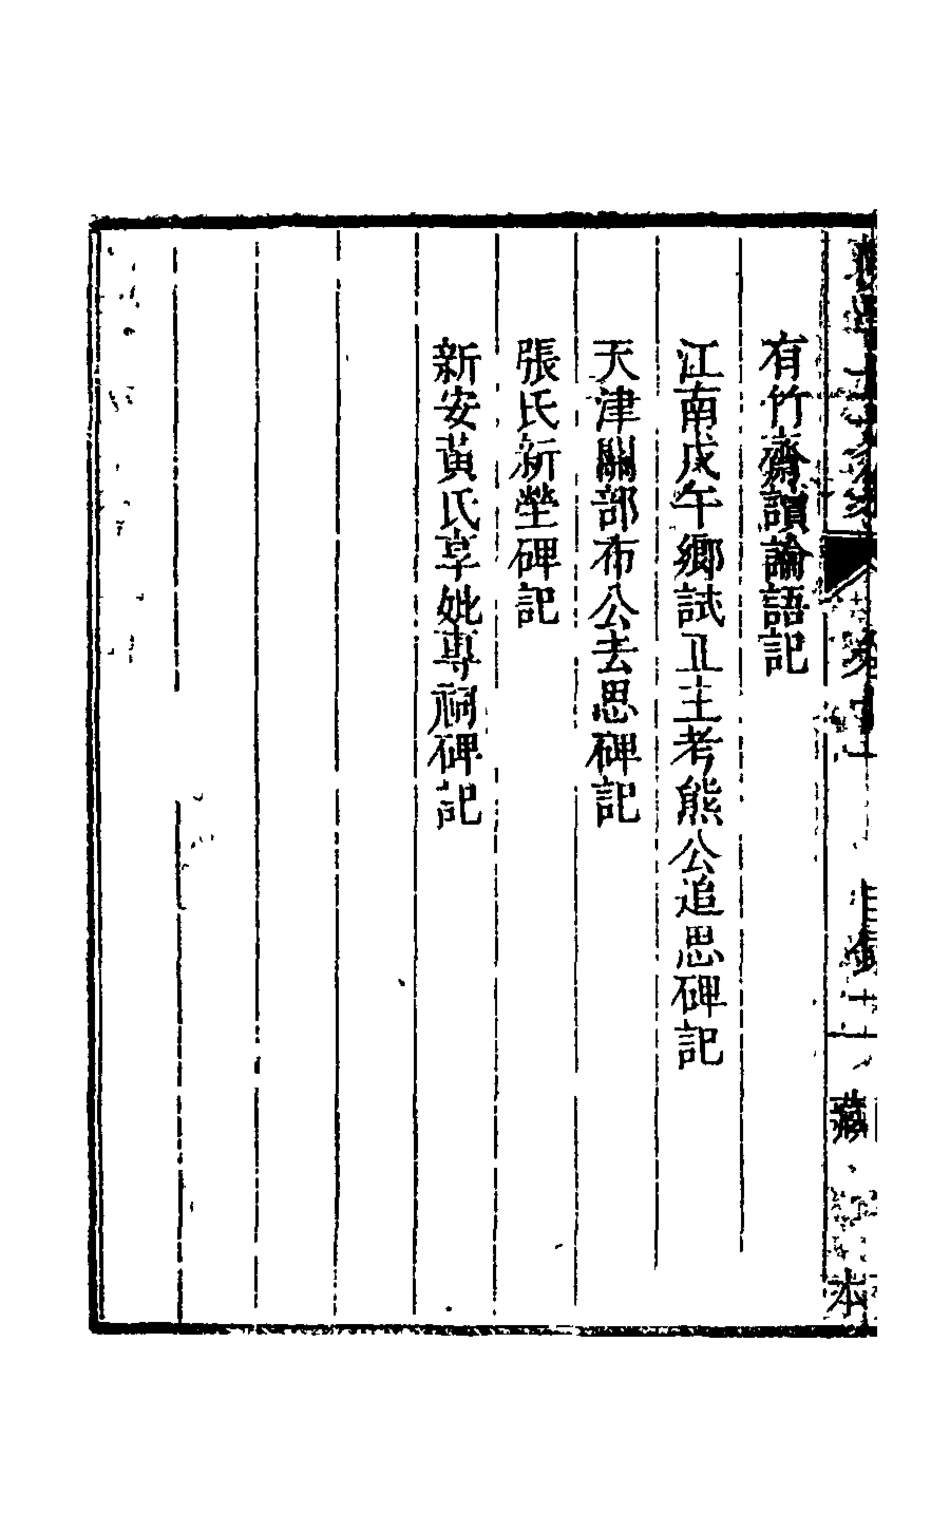 有竹齋讀論語記
江南戊午鄉試正主考熊公追思碑記
天津關部布公去思碑記
張氏新塋碑記
新安黃氏享妣專祠碑記
藏
本